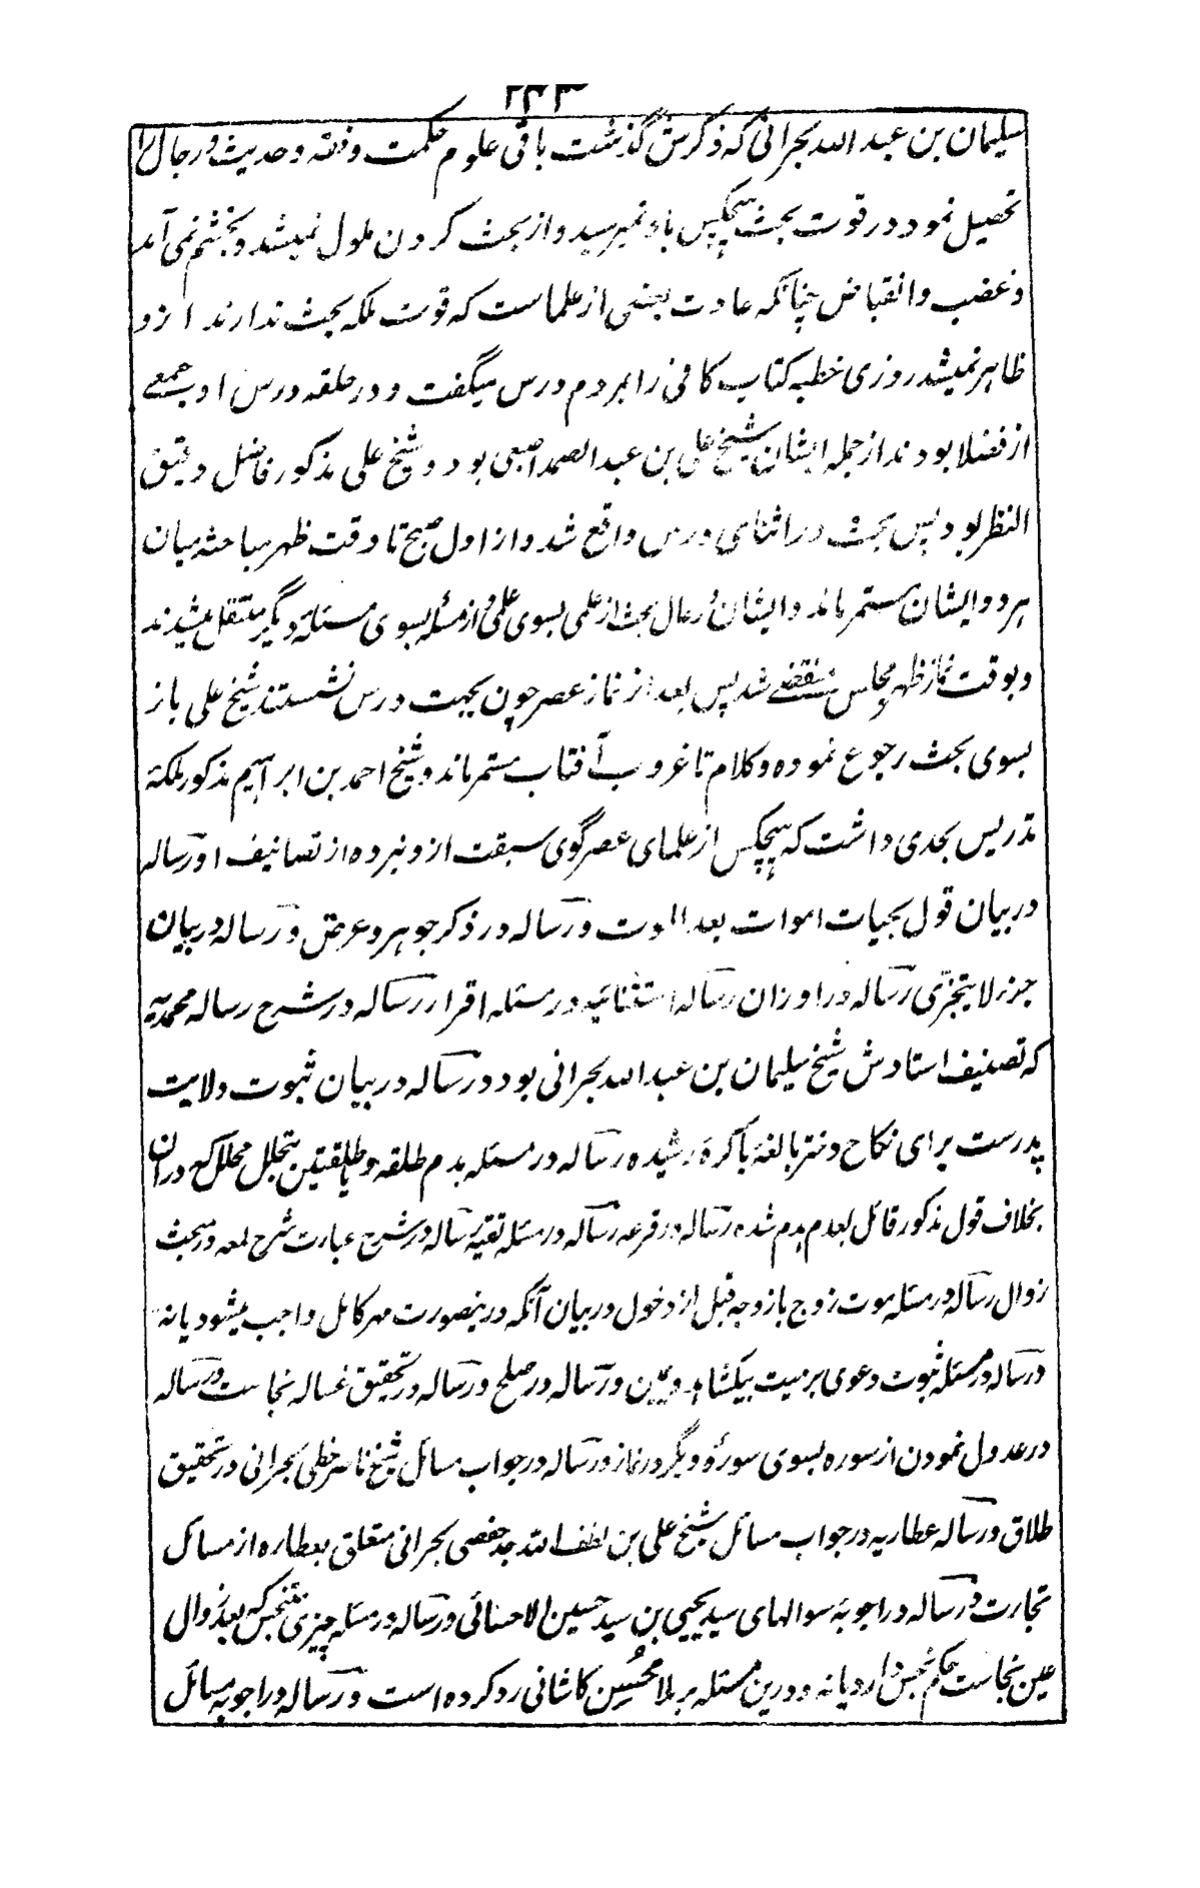 ۲۴۳
سلیمان بن عبد الله بحرانی که ذکرش گذشت باقی علوم حکمت و فقه و حدیث و رجال را
تحصیل نمود در قوت بحث هیچکس باو نمیرسید و از بحث کردن ملول نمیشد و بخشم نمی آمد
و غضب و انقباض چنانکه عادت بعضی از علماست که قوت ملکه بحث ندارند ازو
ظاهر نمیشد روزی خطبه کتاب کافی را بمردم درس میگفت و در حلقه درس او جمعے
از فضلا بودند از جمله ایشان شیخ علی بن عبد الصمد اصبعی بود و شیخ علی مذکور فاضل دقیق
النظر بود پس بحث در اثنای درس واقع شد و از اول صبح تا وقت ظهر مباحثه میان
هر دو ایشان مستمر ماند و ایشان در حال بحث از علمی بسوی علمی و از مسئله بسوی مسئلهٔ دیگر منتقل میشدند
و بوقت نماز ظهر مجلس منقضے شد پس بعد از نماز عصر چون بجهت درس نشستند شیخ علی باز
بسوی بحث رجوع نموده و کلام تا غروب آفتاب مستمر ماند و شیخ احمد بن ابراهیم مذکور ملکهٔ
تدریس بحدی داشت که هیچکس از علمای عصر گوی سبقت ازو نبرده از تصانیف او رساله
در بیان قول بحیات اموات بعد الموت و رساله در ذکر جوهر و عرض و رساله در بیان
جزء لا یتجزی رساله در اوزان رساله استثنائیه در مسئله اقرار رساله در شرح رساله محمدیه
که تصنیف استادش شیخ سلیمان بن عبد الله بحرانی بود و رساله در بیان ثبوت ولایت
پدرست برای نکاح دختر بالغهٔ باکرهٔ رشیده رساله در مسئله هدم طلقه و یا طلقتین بتحلل محلل که دران
بخلاف قول مذکور قائل بعدم هدم شده رساله در قرعه رساله در مسئله تقیه رساله در شرح عبارت شرح لمعه در مبحث
زوال رساله در مسئله موت زوج با زوجه قبل از دخول در بیان آنکه درینصورت مهر کامل واجب میشود یا نه
و رساله در مسئله ثبوت دعوی بر میت بیکشاهد و یمین و رساله در صلح و رساله در تحقیق غساله نجاست و رساله
در عدول نمودن از سوره بسوی سورهٔ دیگر در نماز و رساله در جواب مسائل شیخ ناصر خطی بحرانی در تحقیق
طلاق و رساله عطاریه در جواب مسائل شیخ علی بن لطف الله جد حفصی بحرانی متعلق بعطاره از مسائل
تجارت و رساله در اجوبهٔ سوالهای سید یحیی بن سید حسین الاحسائی و رساله در مسئله چیزی متنجس که بعد زوال
عین نجاست حکم نجس دارد یا نه و درین مسئله بر ملا محسن کاشانی رد کرده است و رساله در اجوبه مسائل